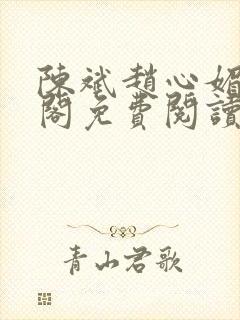 陳斌趙心媚
閣免費閱讀
青山君歌